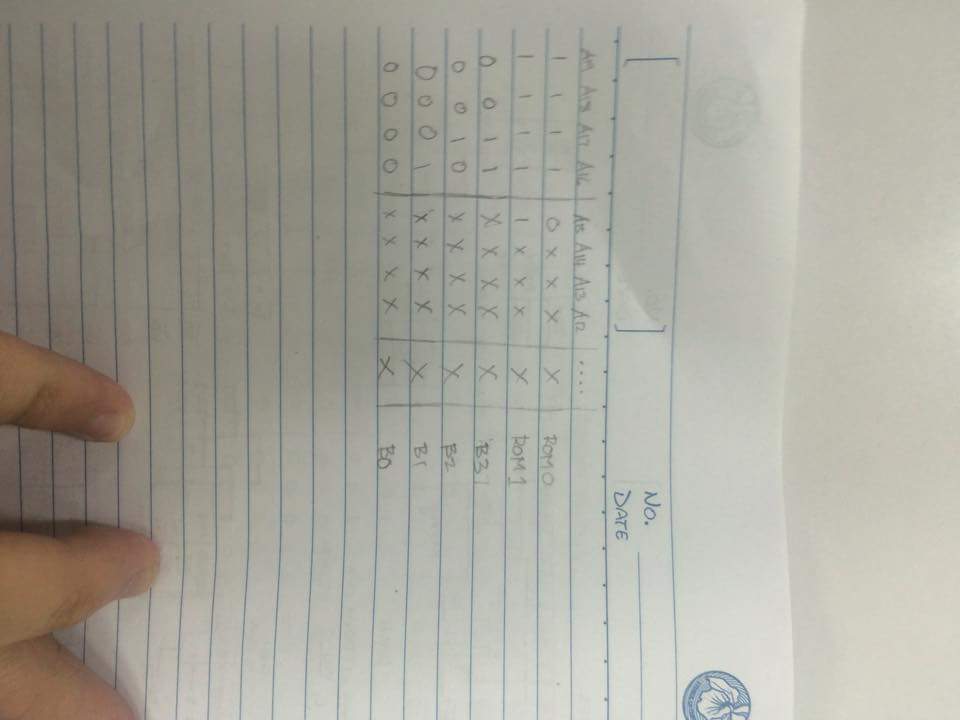 [ ] No.
DATE
A19 A18 A17 A16 A15 A14 A13 A12 ....
1 1 1 1 0 X X X X ROM0
1 1 1 1 1 X X X X ROM1
0 0 1 1 X X X X X B3
0 0 1 0 X X X X X B2
0 0 0 1 X X X X X B1
0 0 0 0 X X X X X B0